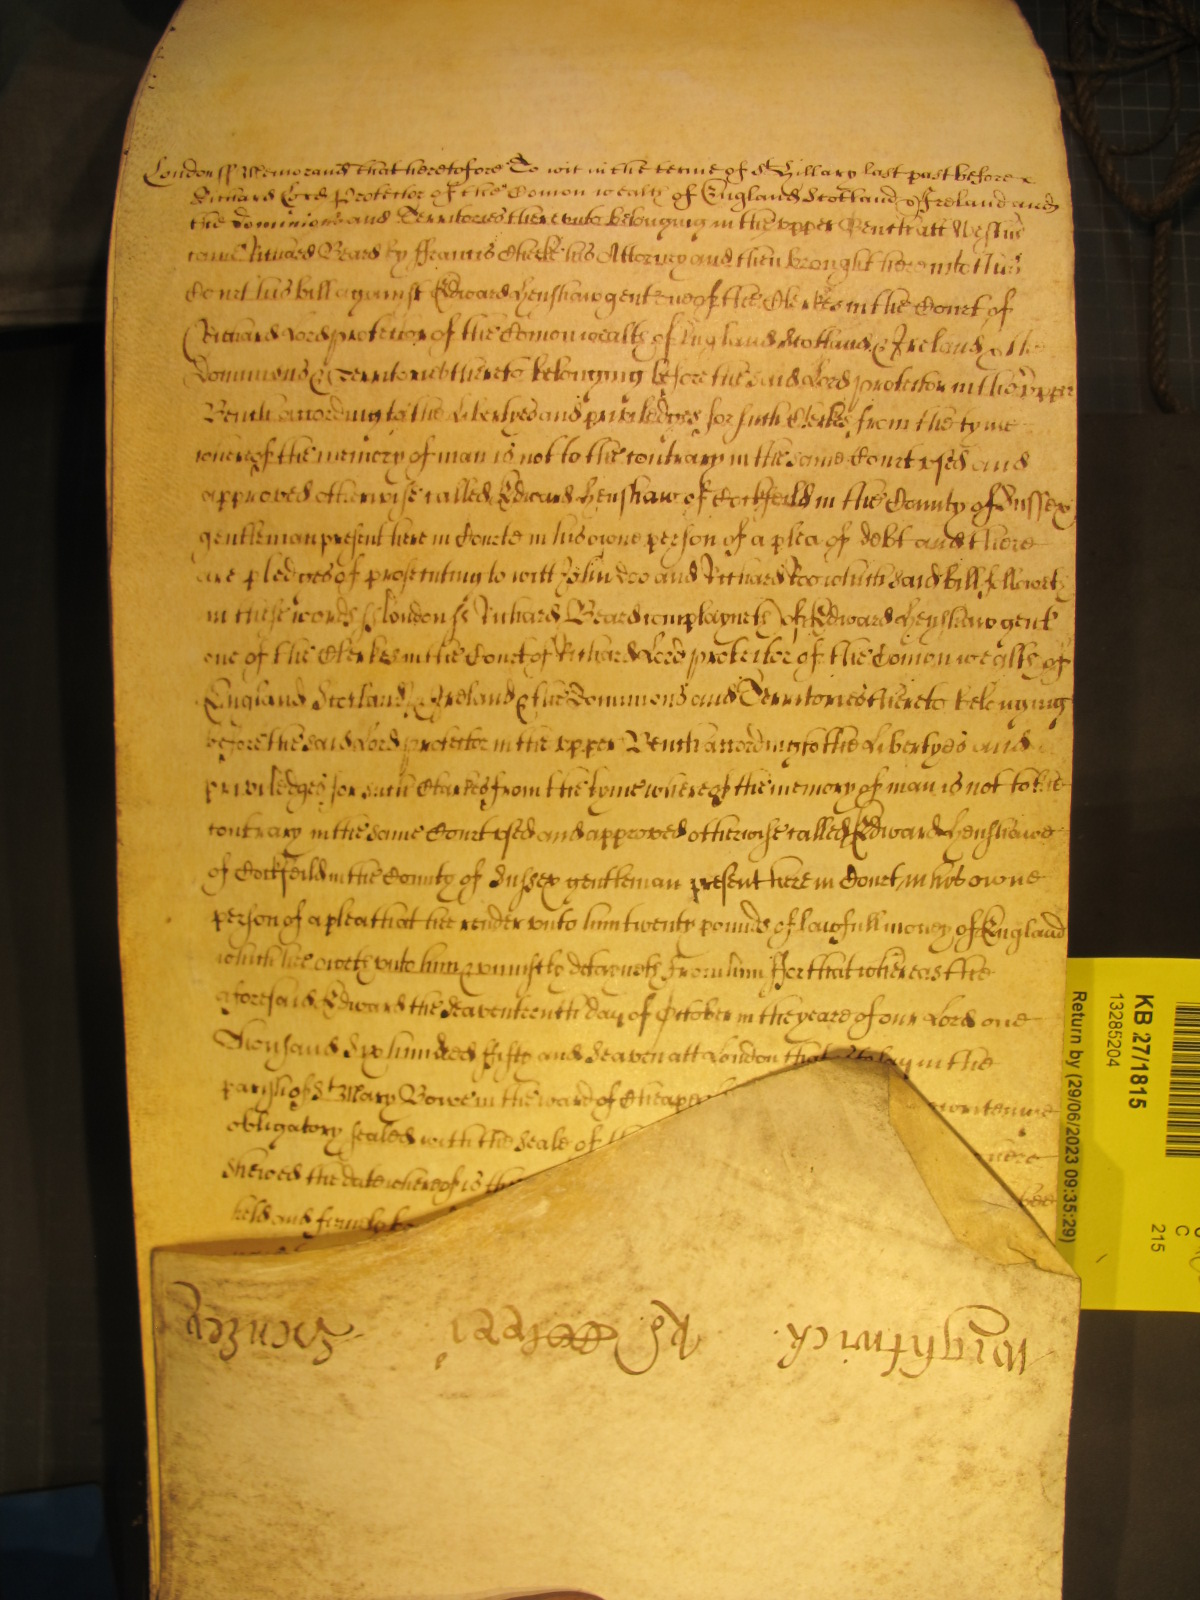 London ss Memorand that heretofore To wit in the terme of St Hillary last past before
Richard Lord Protector of the Comon wealth of England Scotland & Ireland and
the dominions and Territories there unto belonging in the upper Bench att Westm
came Richard Beard by ffrancis Cheeke his Attorney and then brought here into this
Court his bill against Edward Henshaw gent one of the Clerkes in the Court of
Richard Lord protector of the Comon wealth of England Scotland & Ireland & the
Dominions & Territories thereto belonging before the said Lord protector in the upper
Bench according to the Libertyes and priviledges for such Clerkes from the tyme
whereof the memory of man is not to the contrary in the same Court used and
approved otherwise called Edward Henshaw of Cockfeild in the County of Sussex
gentleman present here in Courte in his owne person of a plea of debt and there
are pledges of prosecuting to witt John Doo and Richard Roo which said bill followeth
in these words ss London ss Richard Beard complayneth of Edward Henshaw gent
one of the Clerkes in the Court of Richard Lord protector of the Comon wealth of
England Scotland & Ireland & the Dominions and Territories thereto belonging
before the said Lord protector in the upper Bench according to the Libertyes and
priviledges for such Clarkes from the tyme whereof the memory of man is not to the
contrary in the same Court used and approved otherwise called Edward Henshawe
of Cockfeild in the County of Sussex gentleman present here in Court in his owne
person of a plea that he render unto him twenty pounds of lawfull money of England
which he oweth unto him & uniustly detayneth from him ffor that whereas the
aforesaid Edward the seaventeenth day of October in the yeare of our Lord one
Thousand Six hundred ffifty and Seaven att London that is to say in the
parish of St Mary Bowe in the ward of Cheape
obligatory sealed with the Seale of
shewed the date whereof is the
held and firmly
Wightwick
KB 27/1815
13285204
Return by (29/06/2023 09:35:29)
C
215